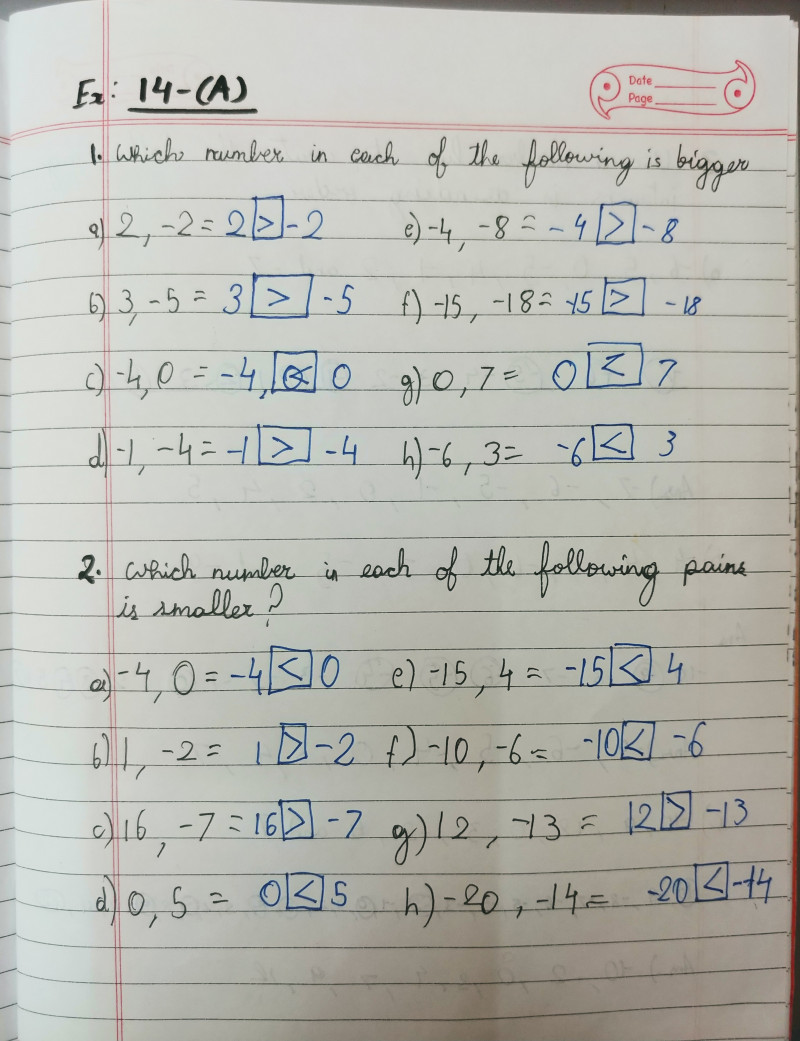 Ex: 14-(A)
Date
Page
1. Which number in each of the following is bigger
a) 2, -2 = 2 > -2 e) -4, -8 = -4 > -8
b) 3, -5 = 3 > -5 f) -15, -18 = -15 > -18
c) -4, 0 = -4, < 0 g) 0, 7 = 0 < 7
d) -1, -4 = -1 > -4 h) -6, 3 = -6 < 3
2. Which number in each of the following pairs
is smaller?
a) -4, 0 = -4 < 0 e) -15, 4 = -15 < 4
b) 1, -2 = 1 > -2 f) -10, -6 = -10 < -6
c) 16, -7 = 16 > -7 g) 12, -13 = 12 > -13
d) 0, 5 = 0 < 5 h) -20, -14 = -20 < -14